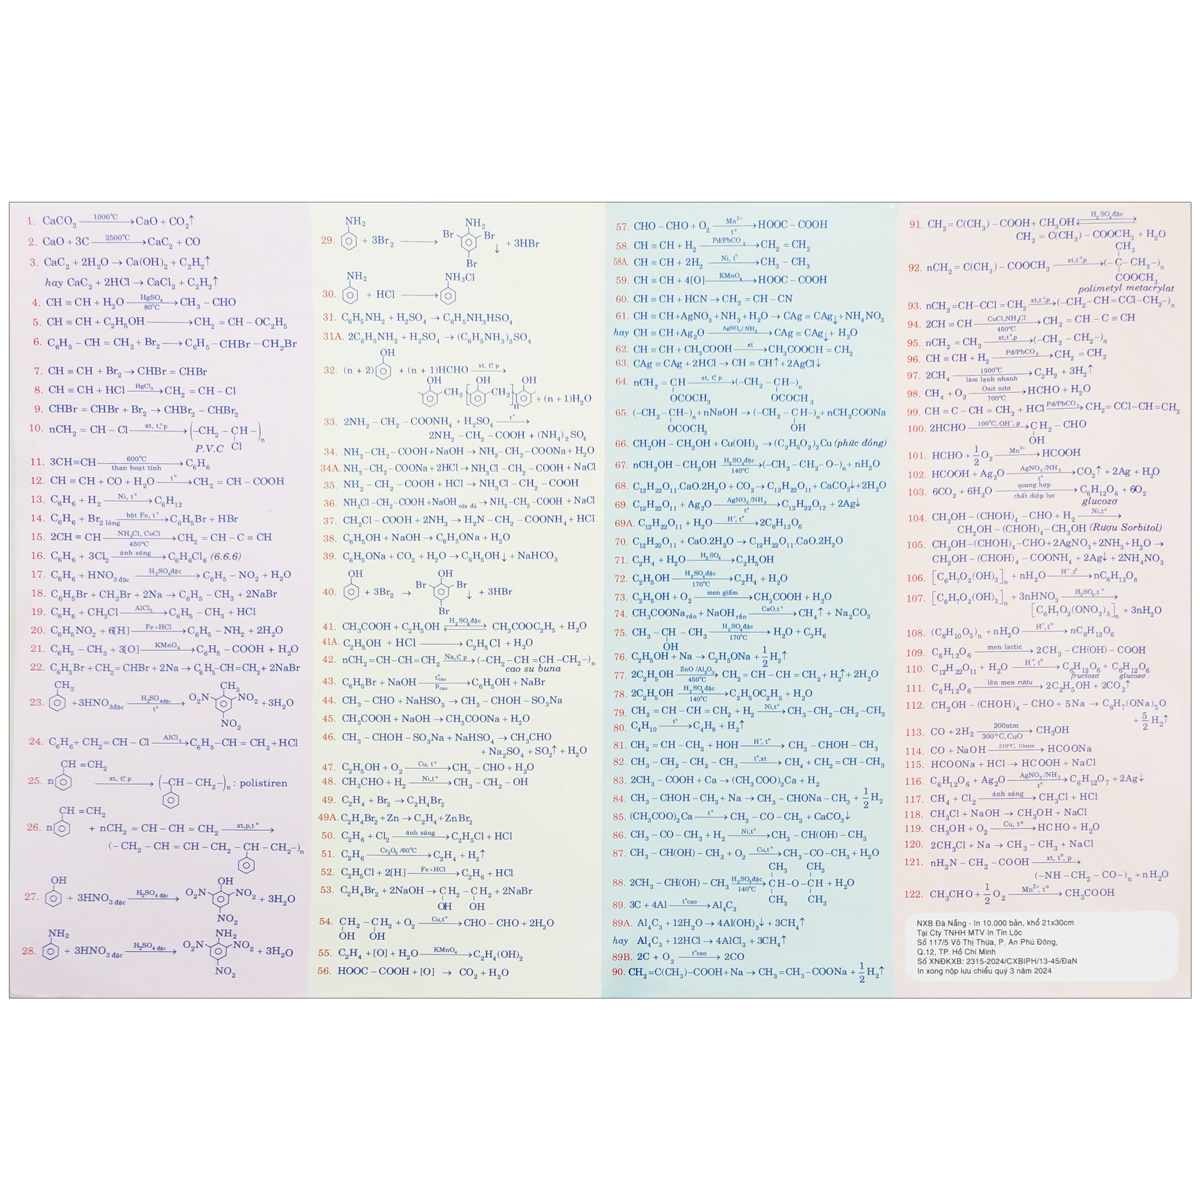 1. CaCO₃ —1000°C→ CaO + CO₂↑
2. CaO + 3C —2500°C→ CaC₂ + CO
3. CaC₂ + 2H₂O → Ca(OH)₂ + C₂H₂↑
hay CaC₂ + 2HCl → CaCl₂ + C₂H₂↑
4. CH ≡ CH + H₂O —HgSO₄ 80°C→ CH₃ − CHO
5. CH ≡ CH + C₂H₅OH → CH₂ = CH − OC₂H₅
6. C₆H₅ − CH = CH₂ + Br₂ → C₆H₅ − CHBr − CH₂Br
7. CH ≡ CH + Br₂ → CHBr = CHBr
8. CH ≡ CH + HCl —HgCl₂→ CH₂ = CH − Cl
9. CHBr = CHBr + Br₂ → CHBr₂ − CHBr₂
10. nCH₂ = CH − Cl —xt, t°, p→ (−CH₂ − CH−)ₙ
P.V.C Cl
11. 3CH≡CH —600°C than hoạt tính→ C₆H₆
12. CH ≡ CH + CO + H₂O —t°→ CH₂ = CH − COOH
13. C₆H₆ + H₂ —Ni, t°→ C₆H₁₂
14. C₆H₆ + Br₂ lỏng —bột Fe, t°→ C₆H₅Br + HBr
15. 2CH ≡ CH —NH₄Cl, CuCl 450°C→ CH₂ = CH − C ≡ CH
16. C₆H₆ + 3Cl₂ —ánh sáng→ C₆H₆Cl₆ (6.6.6)
17. C₆H₆ + HNO₃ đặc —H₂SO₄đặc→ C₆H₅ − NO₂ + H₂O
18. C₆H₅Br + CH₃Br + 2Na → C₆H₅ − CH₃ + 2NaBr
19. C₆H₆ + CH₃Cl —AlCl₃→ C₆H₅ − CH₃ + HCl
20. C₆H₅NO₂ + 6[H] —Fe+HCl→ C₆H₅ − NH₂ + 2H₂O
21. C₆H₅ − CH₃ + 3[O] —KMnO₄→ C₆H₅ − COOH + H₂O
22. C₆H₅Br + CH₂ = CHBr + 2Na → C₆H₅−CH=CH₂ + 2NaBr
CH₃ CH₃
23. +3HNO₃đặc —H₂SO₄đặc t°→ O₂N NO₂ +3H₂O
NO₂
24. C₆H₆ + CH₂ = CH − Cl —AlCl₃→ C₆H₅−CH = CH₂ + HCl
CH = CH₂
25. n —xt, t°, p→ (−CH − CH₂−)ₙ : polistiren
CH = CH₂
26. n + nCH₂ = CH − CH = CH₂ —xt,p,t°→
(−CH₂ − CH = CH − CH₂ − CH − CH₂−)ₙ
OH OH
27. + 3HNO₃ đặc —H₂SO₄ đặc→ O₂N NO₂ + 3H₂O
NO₂
NH₂ NH₂
28. + 3HNO₃ đặc —H₂SO₄ đặc→ O₂N NO₂ + 3H₂O
NO₂
NH₂ NH₂
29. + 3Br₂ → Br Br ↓ + 3HBr
Br
NH₂ NH₃Cl
30. + HCl →
31. C₆H₅NH₂ + H₂SO₄ → C₆H₅NH₃HSO₄
31A. 2C₆H₅NH₂ + H₂SO₄ → (C₆H₅NH₃)₂SO₄
OH
32. (n + 2) + (n + 1)HCHO —xt, t°, p→
OH OH OH
CH₂ CH₂ n + (n + 1)H₂O
33. 2NH₂ − CH₂ − COONH₄ + H₂SO₄ —t°→
2NH₂ − CH₂ − COOH + (NH₄)₂SO₄
34. NH₂ − CH₂ − COOH +NaOH → NH₂−CH₂−COONa + H₂O
34A. NH₂−CH₂−COONa + 2HCl → NH₃Cl−CH₂−COOH + NaCl
35. NH₂ − CH₂ − COOH + HCl → NH₃Cl − CH₂ − COOH
36. NH₃Cl−CH₂−COOH +NaOH vừa đủ → NH₂−CH₂−COOH + NaCl
37. CH₂Cl − COOH + 2NH₃ → H₂N − CH₂ − COONH₄ + HCl
38. C₆H₅OH + NaOH → C₆H₅ONa + H₂O
39. C₆H₅ONa + CO₂ + H₂O → C₆H₅OH↓ + NaHCO₃
OH OH
40. + 3Br₂ → Br Br ↓ + 3HBr
Br
41. CH₃COOH + C₂H₅OH ⇌H₂SO₄đặc t° CH₃COOC₂H₅ + H₂O
41A. C₂H₅OH + HCl → C₂H₅Cl + H₂O
42. nCH₂=CH−CH=CH₂ —Na,t°,p→ (−CH₂−CH=CH−CH₂−)ₙ
cao su buna
43. C₆H₅Br + NaOH —t°cao Pcao→ C₆H₅OH + NaBr
44. CH₃ − CHO + NaHSO₃ → CH₃ − CHOH − SO₃Na
45. CH₃COOH + NaOH → CH₃COONa + H₂O
46. CH₃ − CHOH − SO₃Na + NaHSO₄ → CH₃CHO
+ Na₂SO₄ + SO₂↑ + H₂O
47. C₂H₅OH + O₂ —Cu, t°→ CH₃ − CHO + H₂O
48. CH₃CHO + H₂ —Ni,t°→ CH₃ − CH₂ − OH
49. C₂H₄ + Br₂ → C₂H₄Br₂
49A. C₂H₄Br₂ + Zn → C₂H₄ + ZnBr₂
50. C₂H₆ + Cl₂ —ánh sáng→ C₂H₅Cl + HCl
51. C₂H₆ —Cr₂O₃ /60°C→ C₂H₄ + H₂↑
52. C₂H₅Cl + 2[H] —Fe+HCl→ C₂H₆ + HCl
53. C₂H₄Br₂ + 2NaOH → CH₂ − CH₂ + 2NaBr
OH OH
54. CH₂ − CH₂ + O₂ —Cu,t°→ CHO − CHO + 2H₂O
OH OH
55. C₂H₄ + [O] + H₂O —KMnO₄→ C₂H₄(OH)₂
56. HOOC − COOH + [O] → CO₂ + H₂O
57. CHO − CHO + O₂ —Mn²⁺ t°→ HOOC − COOH
58. CH ≡ CH + H₂ —Pd/PbCO₃→ CH₂ = CH₂
58A. CH ≡ CH + 2H₂ —Ni, t°→ CH₃ − CH₃
59. CH ≡ CH + 4[O] —KMnO₄→ HOOC − COOH
60. CH ≡ CH + HCN → CH₂ = CH − CN
61. CH ≡ CH +AgNO₃ + NH₃ + H₂O → CAg ≡ CAg↓ + NH₄NO₃
hay CH ≡ CH +Ag₂O —AgNO₃/ NH₃→ CAg ≡ CAg↓ + H₂O
62. CH ≡ CH + CH₃COOH —xt→ CH₃COOCH = CH₂
63. CAg ≡ CAg + 2HCl → CH ≡ CH↑ + 2AgCl↓
64. nCH₂ = CH —xt, t°, p→ (−CH₂ − CH−)ₙ
OCOCH₃ OCOCH₃
65. (−CH₂ − CH−)ₙ + nNaOH → (−CH₂ − CH−)ₙ + nCH₃COONa
OCOCH₃ OH
66. CH₂OH − CH₂OH + Cu(OH)₂ → (C₂H₅O₂)₂Cu (phức đồng)
67. nCH₂OH − CH₂OH —H₂SO₄đặc 140°C→ (−CH₂ − CH₂ − O−)ₙ + nH₂O
68. C₁₂H₂₂O₁₁.CaO.2H₂O + CO₂ → C₁₂H₂₂O₁₁ + CaCO₃↓+2H₂O
69. C₁₂H₂₂O₁₁ + Ag₂O —AgNO₃/NH₃→ C₁₂H₂₂O₁₂ + 2Ag↓
69A. C₁₂H₂₂O₁₁ + H₂O —H⁺, t°→ 2C₆H₁₂O₆
70. C₁₂H₂₂O₁₁ + CaO.2H₂O → C₁₂H₂₂O₁₁.CaO.2H₂O
71. C₂H₄ + H₂O —H₂SO₄→ C₂H₅OH
72. C₂H₅OH —H₂SO₄đặc 170°C→ C₂H₄ + H₂O
73. C₂H₅OH + O₂ —men giấm→ CH₃COOH + H₂O
74. CH₃COONa rắn + NaOH rắn —CaO,t°→ CH₄↑ + Na₂CO₃
75. CH₃ − CH − CH₃ —H₂SO₄đặc 170°C→ H₂O + C₃H₆
OH
76. C₂H₅OH + Na → C₂H₅ONa + 1/2 H₂↑
77. 2C₂H₅OH —ZnO /Al₂O₃ 450°C→ CH₂ = CH − CH = CH₂ + H₂↑ + 2H₂O
78. 2C₂H₅OH —H₂SO₄đặc 140°C→ C₂H₅OC₂H₅ + H₂O
79. CH₂ = CH − CH = CH₂ + H₂ —Ni,t°→ CH₃−CH₂−CH₂−CH₃
80. C₄H₁₀ —t°→ C₄H₈ + H₂↑
81. CH₂ = CH − CH₃ + HOH —H⁺, t°→ CH₃ − CHOH − CH₃
82. CH₃ − CH₂ − CH₂ − CH₃ —t°,xt→ CH₄ + CH₂=CH−CH₃
83. 2CH₃ − COOH + Ca → (CH₃COO)₂Ca + H₂
84. CH₃ − CHOH − CH₃ + Na → CH₃ − CHONa − CH₃ + 1/2 H₂
85. (CH₃COO)₂Ca —t°→ CH₃ − CO − CH₃ + CaCO₃↓
86. CH₃ − CO − CH₃ + H₂ —Ni,t°→ CH₃ − CH(OH) − CH₃
87. CH₃ − CH(OH) − CH₃ + O₂ —Cu,t°→ CH₃−CO−CH₃ + H₂O
CH₃ CH₃
88. 2CH₃ − CH(OH) − CH₃ —H₂SO₄đặc 140°C→ CH−O−CH + H₂O
CH₃ CH₃
89. 3C + 4Al —t°cao→ Al₄C₃
89A. Al₄C₃ + 12H₂O → 4Al(OH)₃↓ + 3CH₄↑
hay Al₄C₃ + 12HCl → 4AlCl₃ + 3CH₄↑
89B. 2C + O₂ —t°cao→ 2CO
90. CH₂=C(CH₃)−COOH+Na → CH₃=CH₃−COONa + 1/2 H₂↑
91. CH₂ = C(CH₃) − COOH + CH₃OH ⇌H₂SO₄đặc
CH₂ = C(CH₃) − COOCH₃ + H₂O
CH₃
92. nCH₂ = C(CH₃) − COOCH₃ —xt,t°,p→ (−C − CH₂−)ₙ
COOCH₃
polimetyl metacrylat
93. nCH₂=CH−CCl = CH₂ —xt,t°,p→ (−CH₂−CH=CCl−CH₂−)ₙ
94. 2CH ≡ CH —CuCl,NH₄Cl 450°C→ CH₂ = CH − C ≡ CH
95. nCH₂ = CH₂ —xt,t°,p→ (−CH₂ − CH₂−)ₙ
96. CH ≡ CH + H₂ —Pd/PbCO₃→ CH₂ = CH₂
97. 2CH₄ —1500°C làm lạnh nhanh→ C₂H₂ + 3H₂↑
98. CH₄ + O₂ —Oxit nitơ 700°C→ HCHO + H₂O
99. CH ≡ C − CH = CH₂ + HCl —Pd/PbCO₃→ CH₂=CCl−CH=CH₂
100. 2HCHO —100°C, OH⁻, p→ CH₂ − CHO
OH
101. HCHO + 1/2 O₂ —Mn²⁺→ HCOOH
102. HCOOH + Ag₂O —AgNO₃ /NH₃ t°→ CO₂↑ + 2Ag + H₂O
103. 6CO₂ + 6H₂O —quang hợp chất diệp lục→ C₆H₁₂O₆ + 6O₂
glucozơ
104. CH₂OH − (CHOH)₄ − CHO + H₂ —Ni,t°→
CH₂OH − (CHOH)₄ − CH₂OH (Rượu Sorbitol)
105. CH₂OH − (CHOH)₄ − CHO + 2AgNO₃ + 2NH₃ + H₂O →
CH₂OH − (CHOH)₄ − COONH₄ + 2Ag↓ + 2NH₄NO₃
106. [C₆H₇O₂(OH)₃]ₙ + nH₂O —H⁺, t°→ nC₆H₁₂O₆
107. [C₆H₇O₂(OH)₃]ₙ + 3nHNO₃ —H₂SO₄, t°→
[C₆H₇O₂(ONO₂)₃]ₙ + 3nH₂O
108. (C₆H₁₀O₅)ₙ + nH₂O —H⁺, t°→ nC₆H₁₂O₆
109. C₆H₁₂O₆ —men lactic→ 2CH₃ − CH(OH)− COOH
110. C₁₂H₂₂O₁₁ + H₂O —H⁺, t°→ C₆H₁₂O₆ + C₆H₁₂O₆
fructozơ glucozơ
111. C₆H₁₂O₆ —lên men rượu→ 2C₂H₅OH + 2CO₂↑
112. CH₂OH − (CHOH)₄ − CHO + 5Na → C₆H₇(ONa)₅O
+ 5/2 H₂↑
113. CO + 2H₂ —200atm 300°C, CuO→ CH₃OH
114. CO + NaOH —210°C, 10atm→ HCOONa
115. HCOONa + HCl → HCOOH + NaCl
116. C₆H₁₂O₆ + Ag₂O —AgNO₃/NH₃ t°→ C₆H₁₂O₇ + 2Ag↓
117. CH₄ + Cl₂ —ánh sáng→ CH₃Cl + HCl
118. CH₃Cl + NaOH → CH₃OH + NaCl
119. CH₃OH + O₂ —Cu, t°→ HCHO + H₂O
120. 2CH₃Cl + Na → CH₃ − CH₃ + NaCl
121. nH₂N − CH₂ − COOH —xt, t°, p→
(−NH − CH₂ − CO−)ₙ + nH₂O
122. CH₃CHO + 1/2 O₂ —Mn²⁺, t°→ CH₃COOH
NXB Đà Nẵng - In 10.000 bản, khổ 21x30cm
Tại Cty TNHH MTV In Tín Lộc
Số 117/5 Võ Thị Thừa, P. An Phú Đông,
Q.12, TP. Hồ Chí Minh
Số XNĐKXB: 2315-2024/CXBIPH/13-45/ĐaN
In xong nộp lưu chiểu quý 3 năm 2024